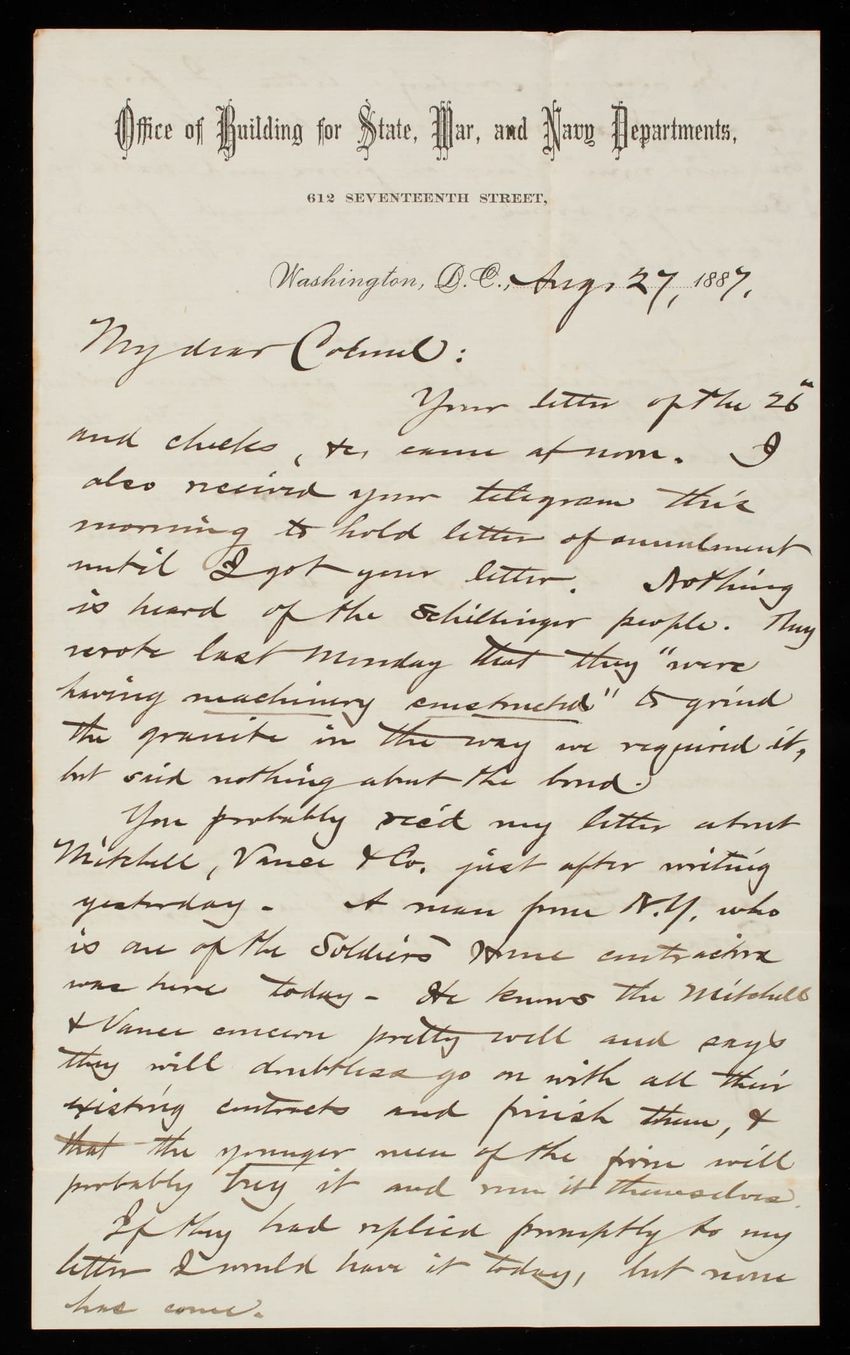 Office of Building for State, War, and Navy Departments,
612 SEVENTEENTH STREET,
Washington, D.C., Aug. 27, 1887.
My dear Colonel:
Your letter of the 26th
and checks, &c, came at noon. I
also received your telegram this
morning to hold letter of annulment
until I got your letter. Nothing
is heard of the Schillinger people. They
wrote last Monday that they "were
having machinery constructed" to grind
the granite in the way we required it,
but said nothing about the bond.
You probably rec'd my letter about
Mitchell, Vance & Co. just after writing
yesterday - A man from N.Y. who
is one of the Soldiers Home contractors
was here today - He knows the Mitchell
& Vance concern pretty well and says
they will doubtless go on with all their
existing contracts and finish them, &
that the younger men of the firm will
probably buy it and run it themselves.
If they had replied promptly to my
letter I would have it today, but none
has come.